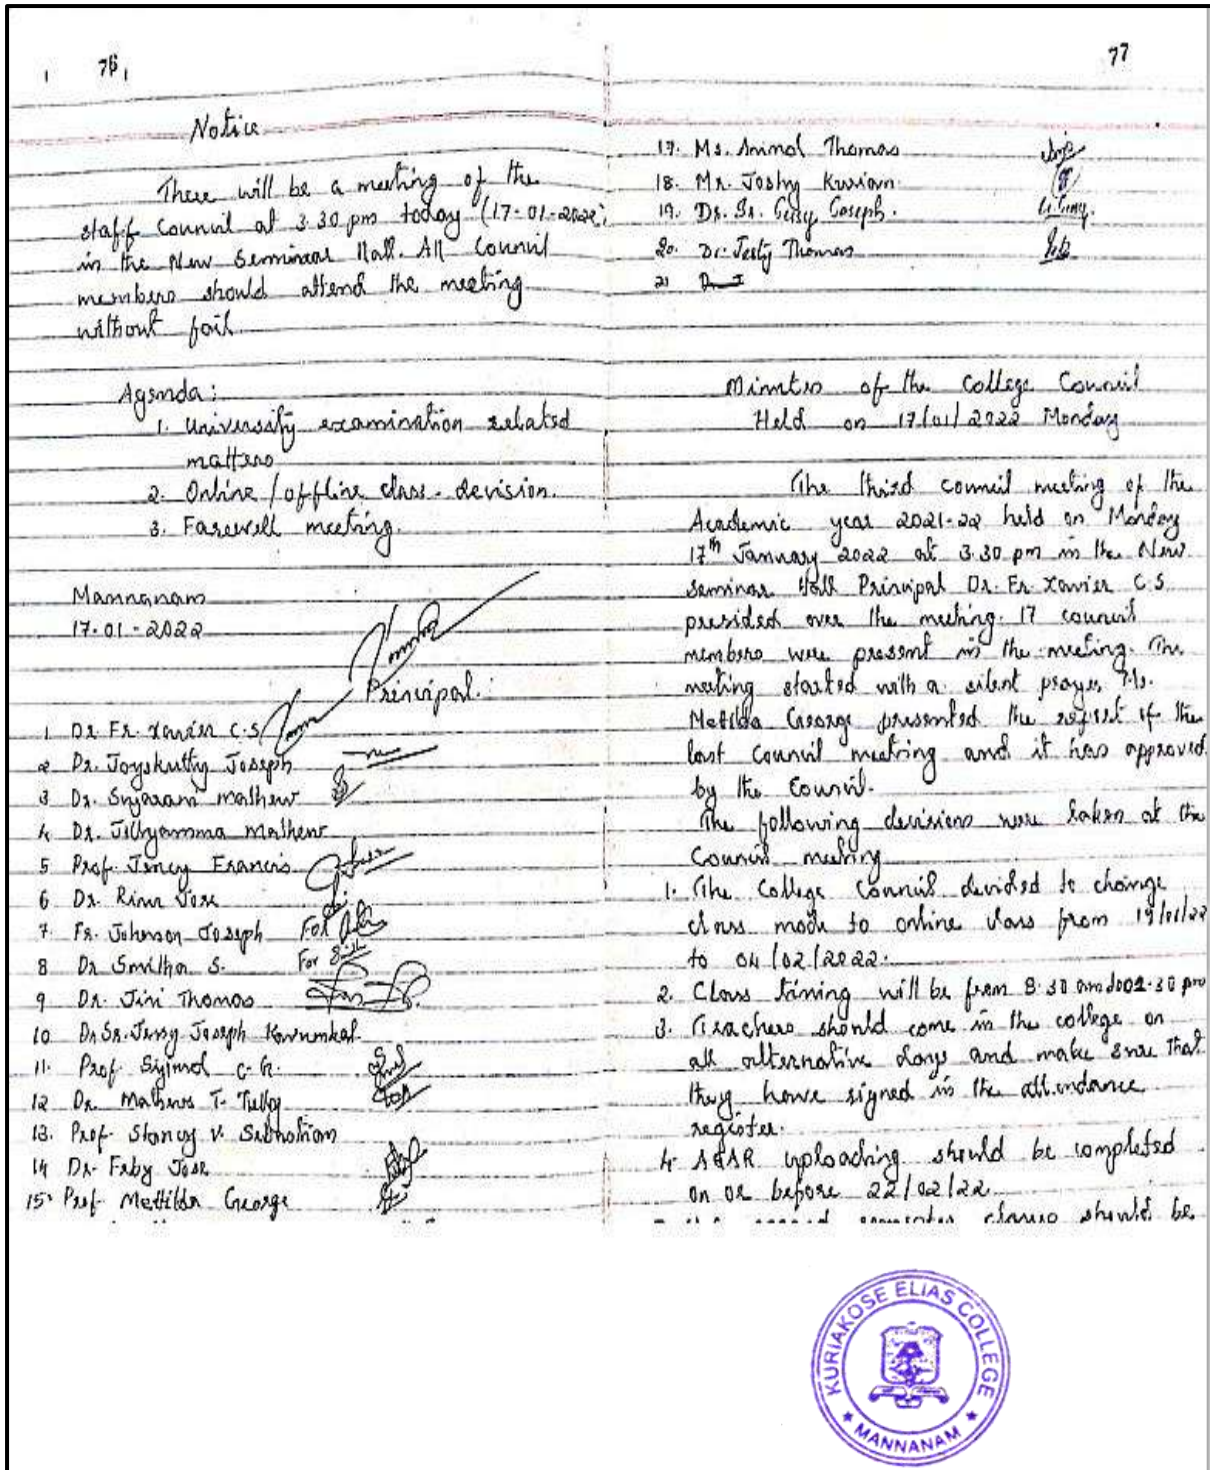 76
Notice
There will be a meeting of the
staff Council at 3.30 pm today (17-01-2022)
in the New Seminar Hall. All Council
members should attend the meeting
without fail.
Agenda:
1. University examination related
matters
2. Online / offline class - decision.
3. Farewell meeting.
Mannanam
17-01-2022
Principal.
1 Dr. Fr. Xavier C.S
2 Dr. Joyskutty Joseph
3 Dr. Mathew
4 Dr. Mathew
5 Prof. Jency Francis
6 Dr. Rinu Jose
7 Fr. Johnson Joseph For
8 Dr Smitha S. For
9 Dr. Jini Thomas
10 Dr Sr. Jessy Joseph
11. Prof. Sijimol C.
12 Dr. Mathews T.
13. Prof. Stancy V. Sebastian
14 Dr. Feby Jose
15 Prof. Mettilda George
77
17. Ms. Thomas
18. Mr. Joshy Kurian
19. Dr. Sr.
20. Dr. Jesty Thomas
21
Minutes of the College Council
Held on 17/01/2022 Monday
The third council meeting of the
Academic year 2021-22 held on Monday
17th January 2022 at 3.30 pm in the New
Seminar Hall Principal Dr. Fr. Xavier C.S
presided over the meeting. 17 council
members were present in the meeting. The
meeting started with a silent prayer. Ms.
Matilda George presented the report of the
last Council meeting and it has approved
by the Council.
The following decisions were taken at the
Council meeting
1. The College Council decided to change
class mode to online class from
to 04/02/2022.
2. Class timing will be from 8.30 am
3. Teachers should come in the college on
all alternative days and make sure that
they have signed in the attendance
register.
4. AQAR uploading should be completed
on or before 22/02/22
semester classes should be
KURIAKOSE ELIAS COLLEGE
MANNANAM